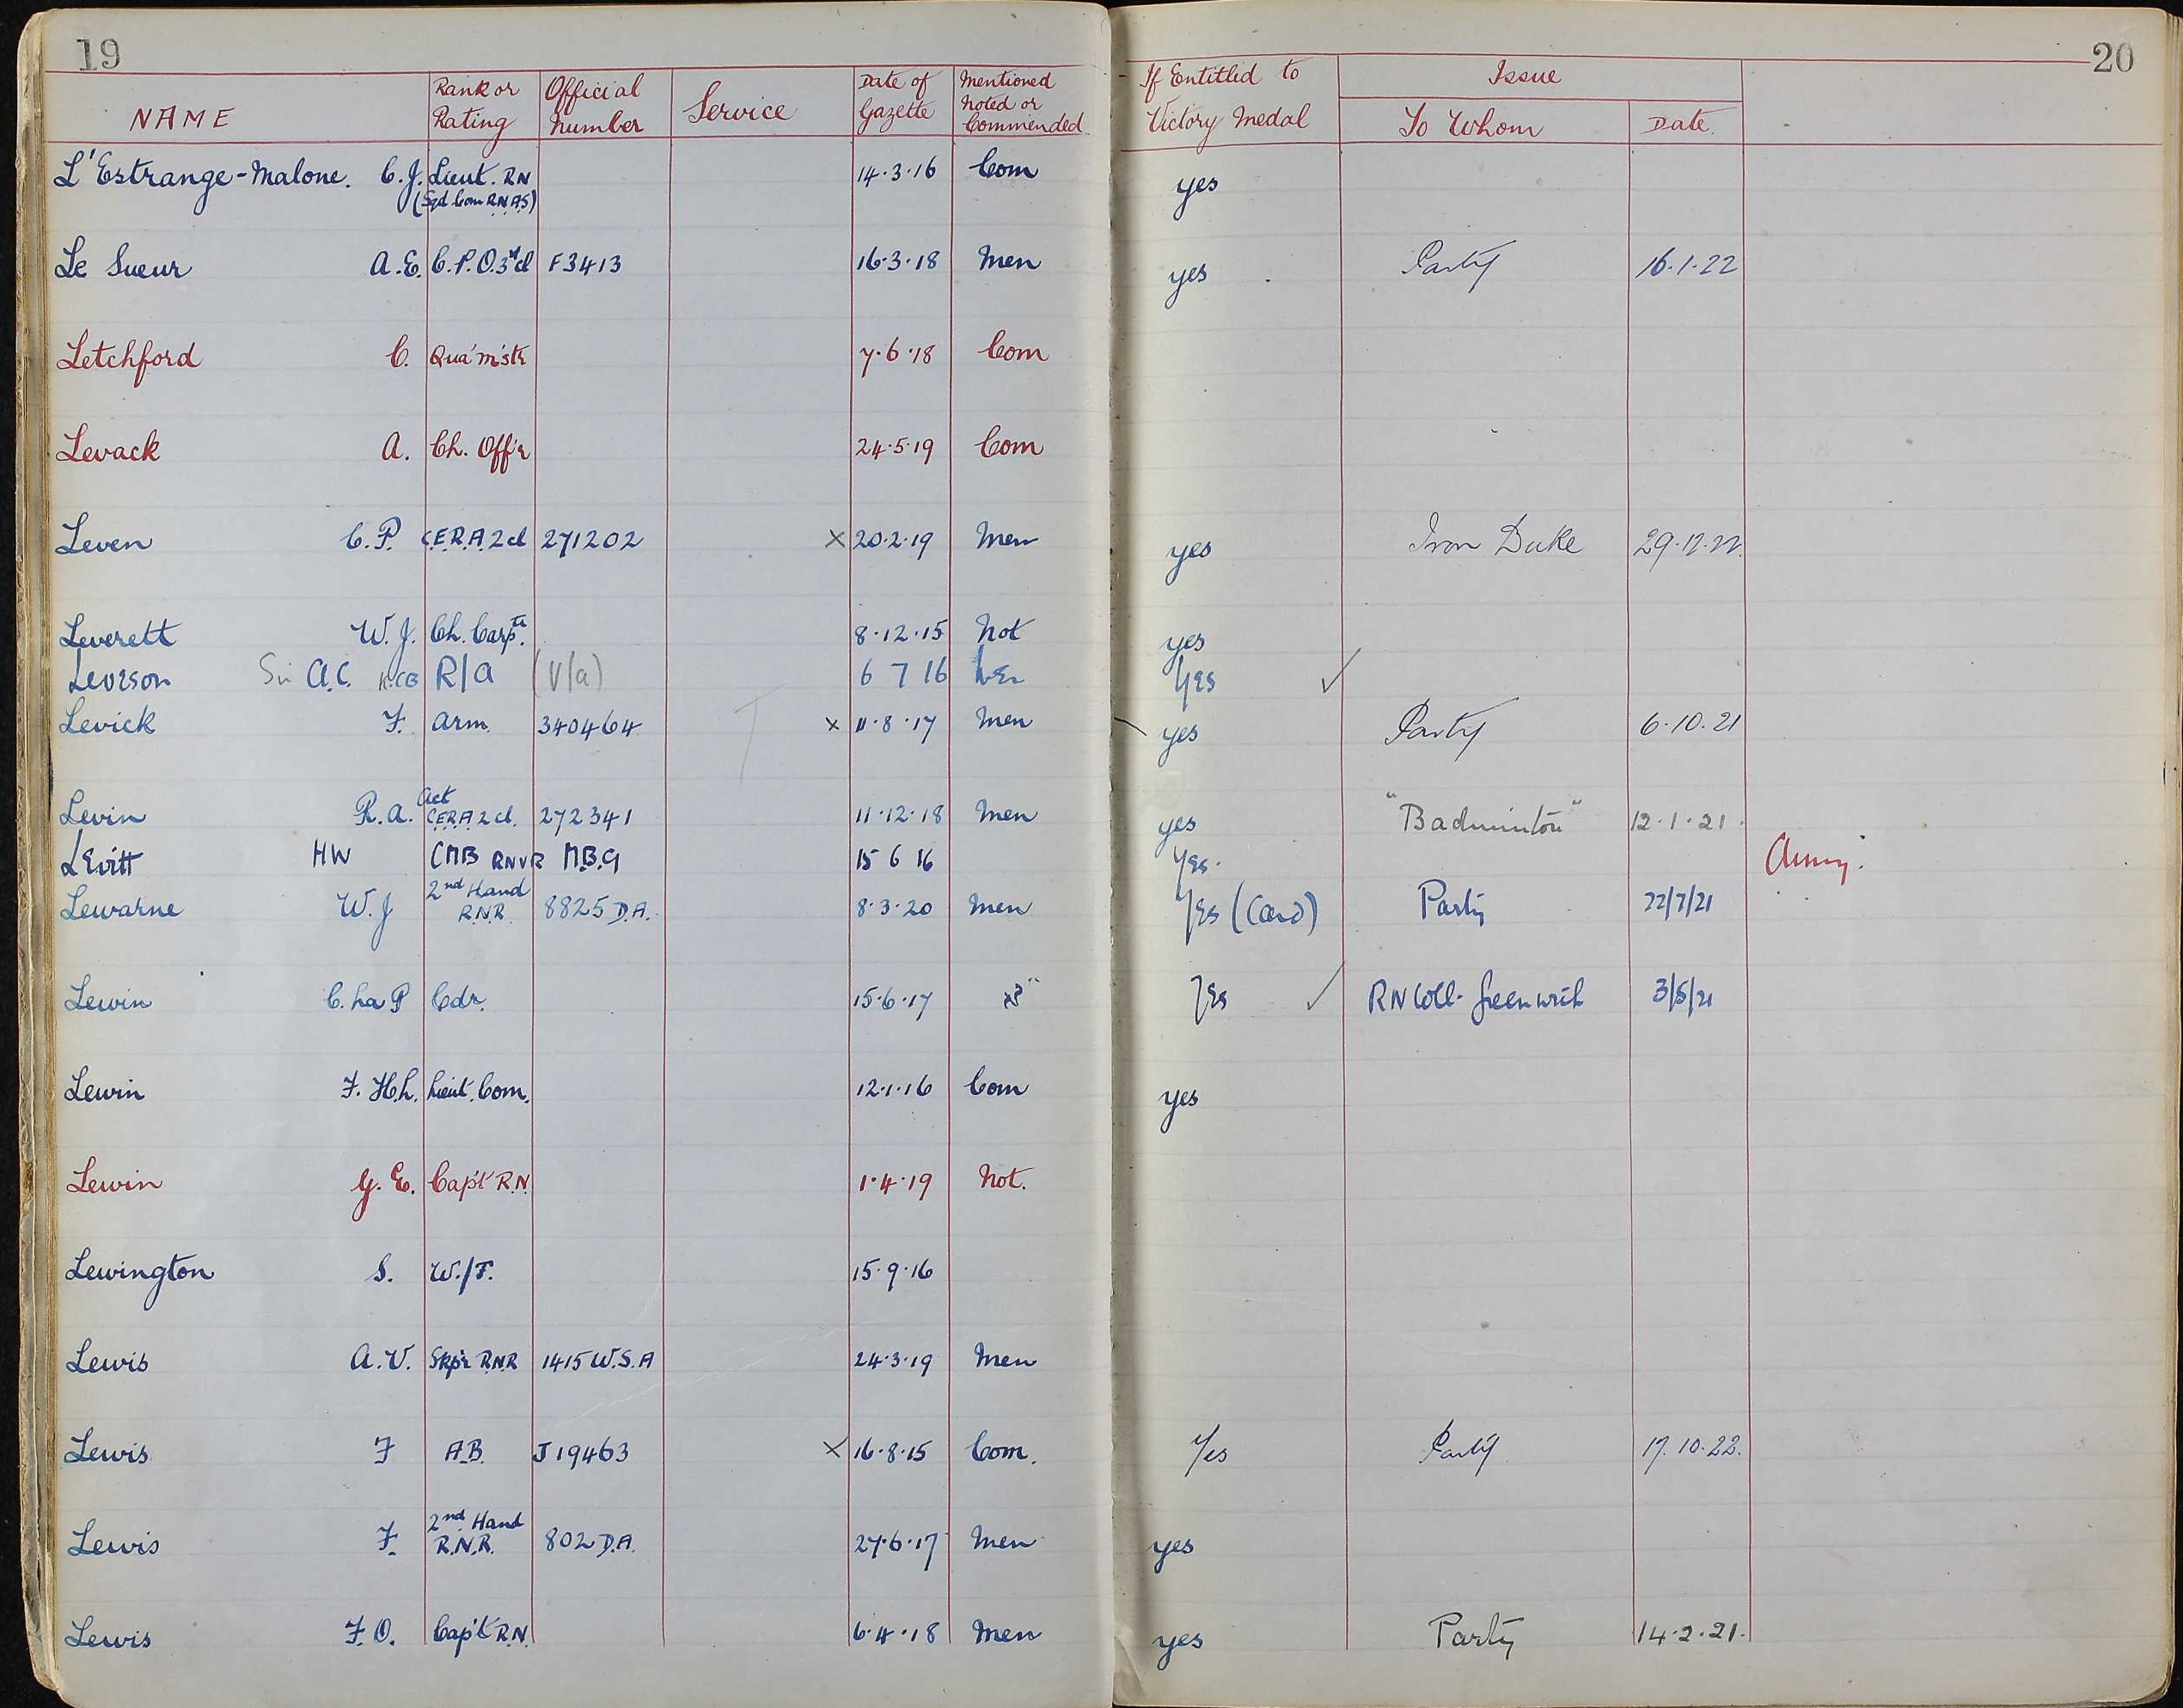 19
20
NAME Rank or Rating Official Number Service Date of Gazette Mentioned Noted or Commended If Entitled to Victory Medal Issue To Whom Date
L'Estrange-Malone. C.J. Lieut. RN (Sqd Com R.N.A.S) 14.3.16 Com yes
Le Sueur A.E. C.P.O. 3rd cl F3413 16.3.18 Men yes Party 16.1.22
Letchford C. Qua'm'str 7.6.18 Com
Levack A. Ch. Off'r 24.5.19 Com
Leven C.P. C.E.R.A. 2 cl 271202 × 20.2.19 Men yes Iron Duke 29.12.22.
Leverett W.J. Ch. Carp.tr 8.12.15 Not yes
Leveson Sir A.C. KCB R/A (V/a) 6 7 16 yes ✓
Levick F. Arm. 340464 × 11.8.17 Men yes Party 6.10.21
Levin R.A. Act C.E.R.A 2 cl. 272341 11.12.18 Men yes "Badminton" 12.1.21.
Levitt HW CMB RNVR M.B.9 15 6 16 Yes. Army.
Lewarne W.J 2nd Hand R.N.R. 8825 D.A. 8.3.20 Men Yes (Card) Party 22/7/21
Lewin C. La P Cdr. 15.6.17 Yes ✓ RN Coll. Greenwich 3/5/21
Lewin F. H.L. Lieut. Com. 12.1.16 Com yes
Lewin G. E. Capt R.N. 1.4.19 Not.
Lewington S. W./T. 15.9.16
Lewis A.V. Skp'r R.N.R 1415 W.S.A 24.3.19 Men
Lewis F A.B. J19463 × 16.8.15 Com. Yes Party 17.10.22.
Lewis F. 2nd Hand R.N.R. 802 D.A. 27.6.17 Men yes
Lewis F.O. Capt R.N. 6.4.18 Men yes Party 14.2.21.